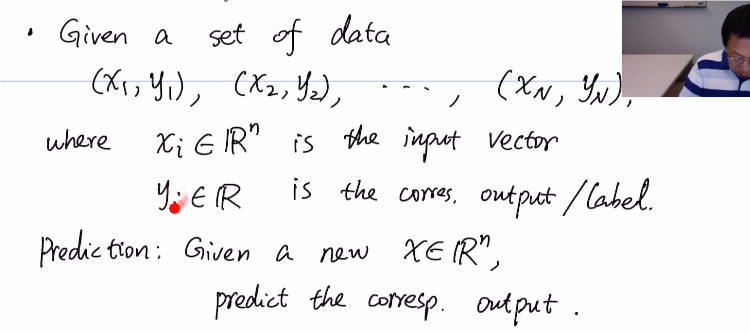 · Given a set of data
(x₁, y₁), (x₂, y₂), ..., (x_N, y_N),
where xᵢ ∈ ℝⁿ is the input vector
yᵢ ∈ ℝ is the corres. output / label.
Prediction: Given a new x ∈ ℝⁿ,
predict the corresp. output .